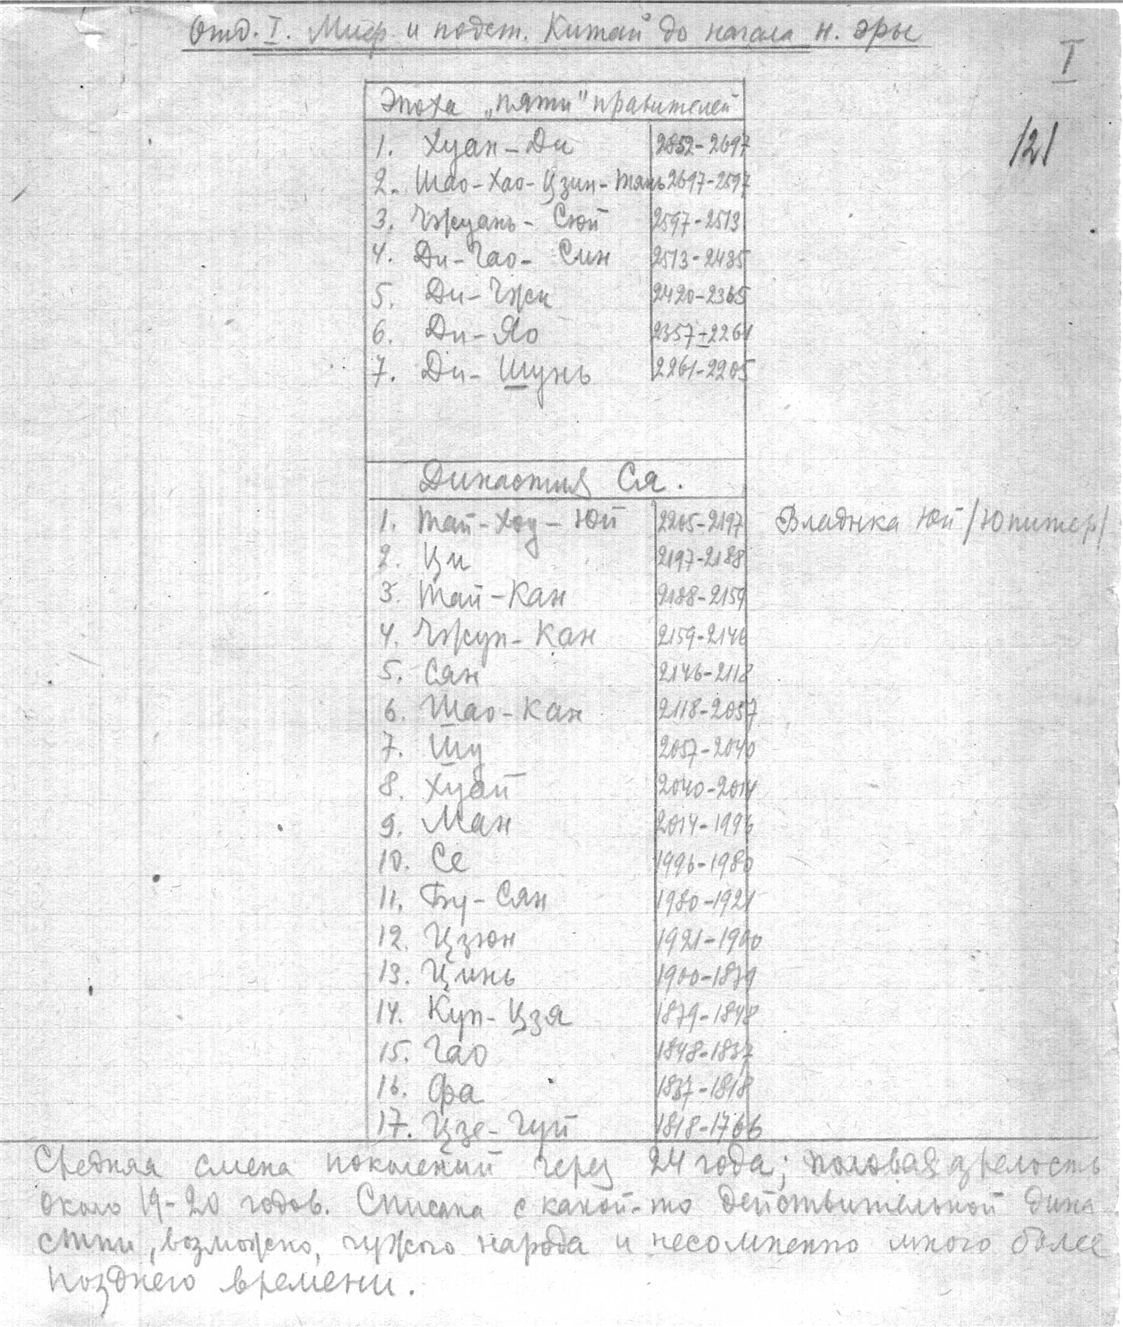 Отд. I. Миф. и подст. Китай до начала н. эры
I
121
Эпоха „пяти" правителей
1. Хуан-Ди 2852-2697
2. Шао-Хао-Цзин-Тянь 2697-2597
3. Чжуань-Сюй 2597-2513
4. Ди-Гао-Син 2513-2435
5. Ди-Чжи 2420-2365
6. Ди-Яо 2357-2261
7. Ди-Шунь 2261-2205
Династия Ся.
1. Тай-Хоу-Юй 2205-2197 Владыка Юй /Юпитер/
2. Ци 2197-2188
3. Тай-Кан 2188-2159
4. Чжун-Кан 2159-2146
5. Сян 2146-2118
6. Шао-Кан 2118-2057
7. Шу 2057-2040
8. Хуай 2040-2014
9. Ман 2014-1996
10. Се 1996-1980
11. Бу-Сян 1980-1921
12. Цзюн 1921-1900
13. Цинь 1900-1879
14. Кун-Цзя 1879-1848
15. Гао 1848-1837
16. Фа 1837-1818
17. Цзе-Гуй 1818-1766
Средняя смена поколений через 24 года; половая зрелость
около 19-20 годов. Списана с какой-то действительной дина
стии, возможно, чужого народа и несомненно много более
позднего времени.